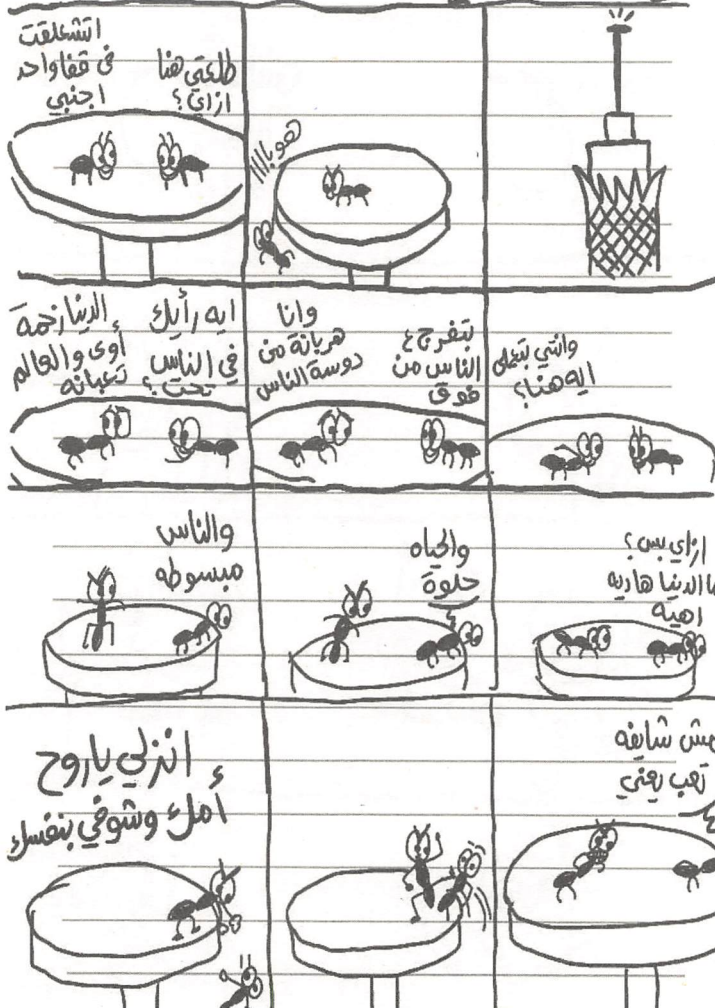 هوبااااا
طلعتي هنا
ازاي؟
اتشعلقت
فى قفا واحد
اجنبي
وانتي بتعملي
ايه هنا؟
بتفرج ع
الناس من
فوق
وانا
هربانة من
دوسة الناس
ايه رأيك
في الناس
تحت؟
الدنيا زحمة
أوى والعالم
تعبانه
ازاي بس؟
ما الدنيا هاديه
اهيه
والحياه
حلوة
والناس
مبسوطه
مش شايفه
تعب يعني
انزلي ياروح
أمك وشوفي بنفسك